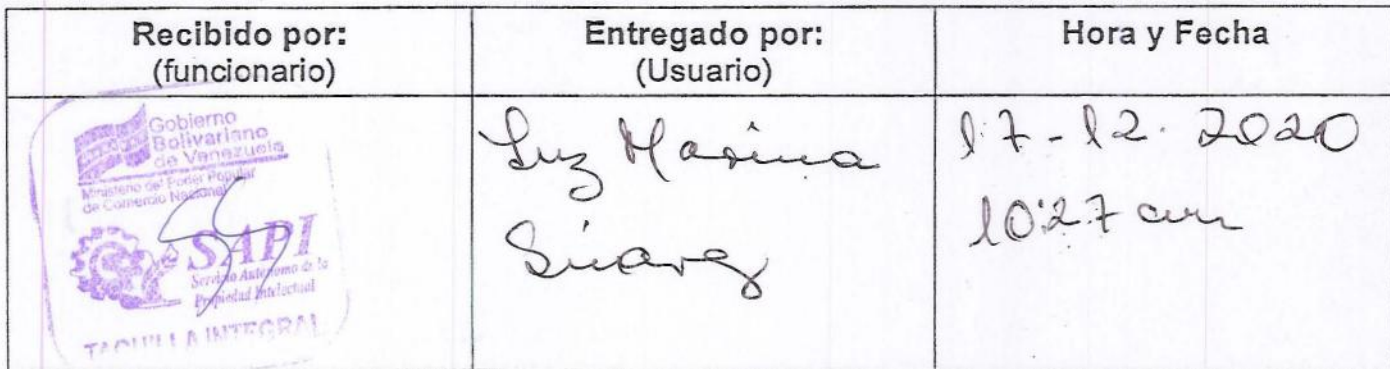 Recibido por:
(funcionario)
Entregado por:
(Usuario)
Hora y Fecha
Gobierno
Bolivariano
de Venezuela
Ministerio del Poder Popular
de Comercio Nacional
SAPI
Servicio Autónomo de la
Propiedad Intelectual
TAQUILLA INTEGRAL
Luz Marina
Suárez
17-12-2020
10:27 am